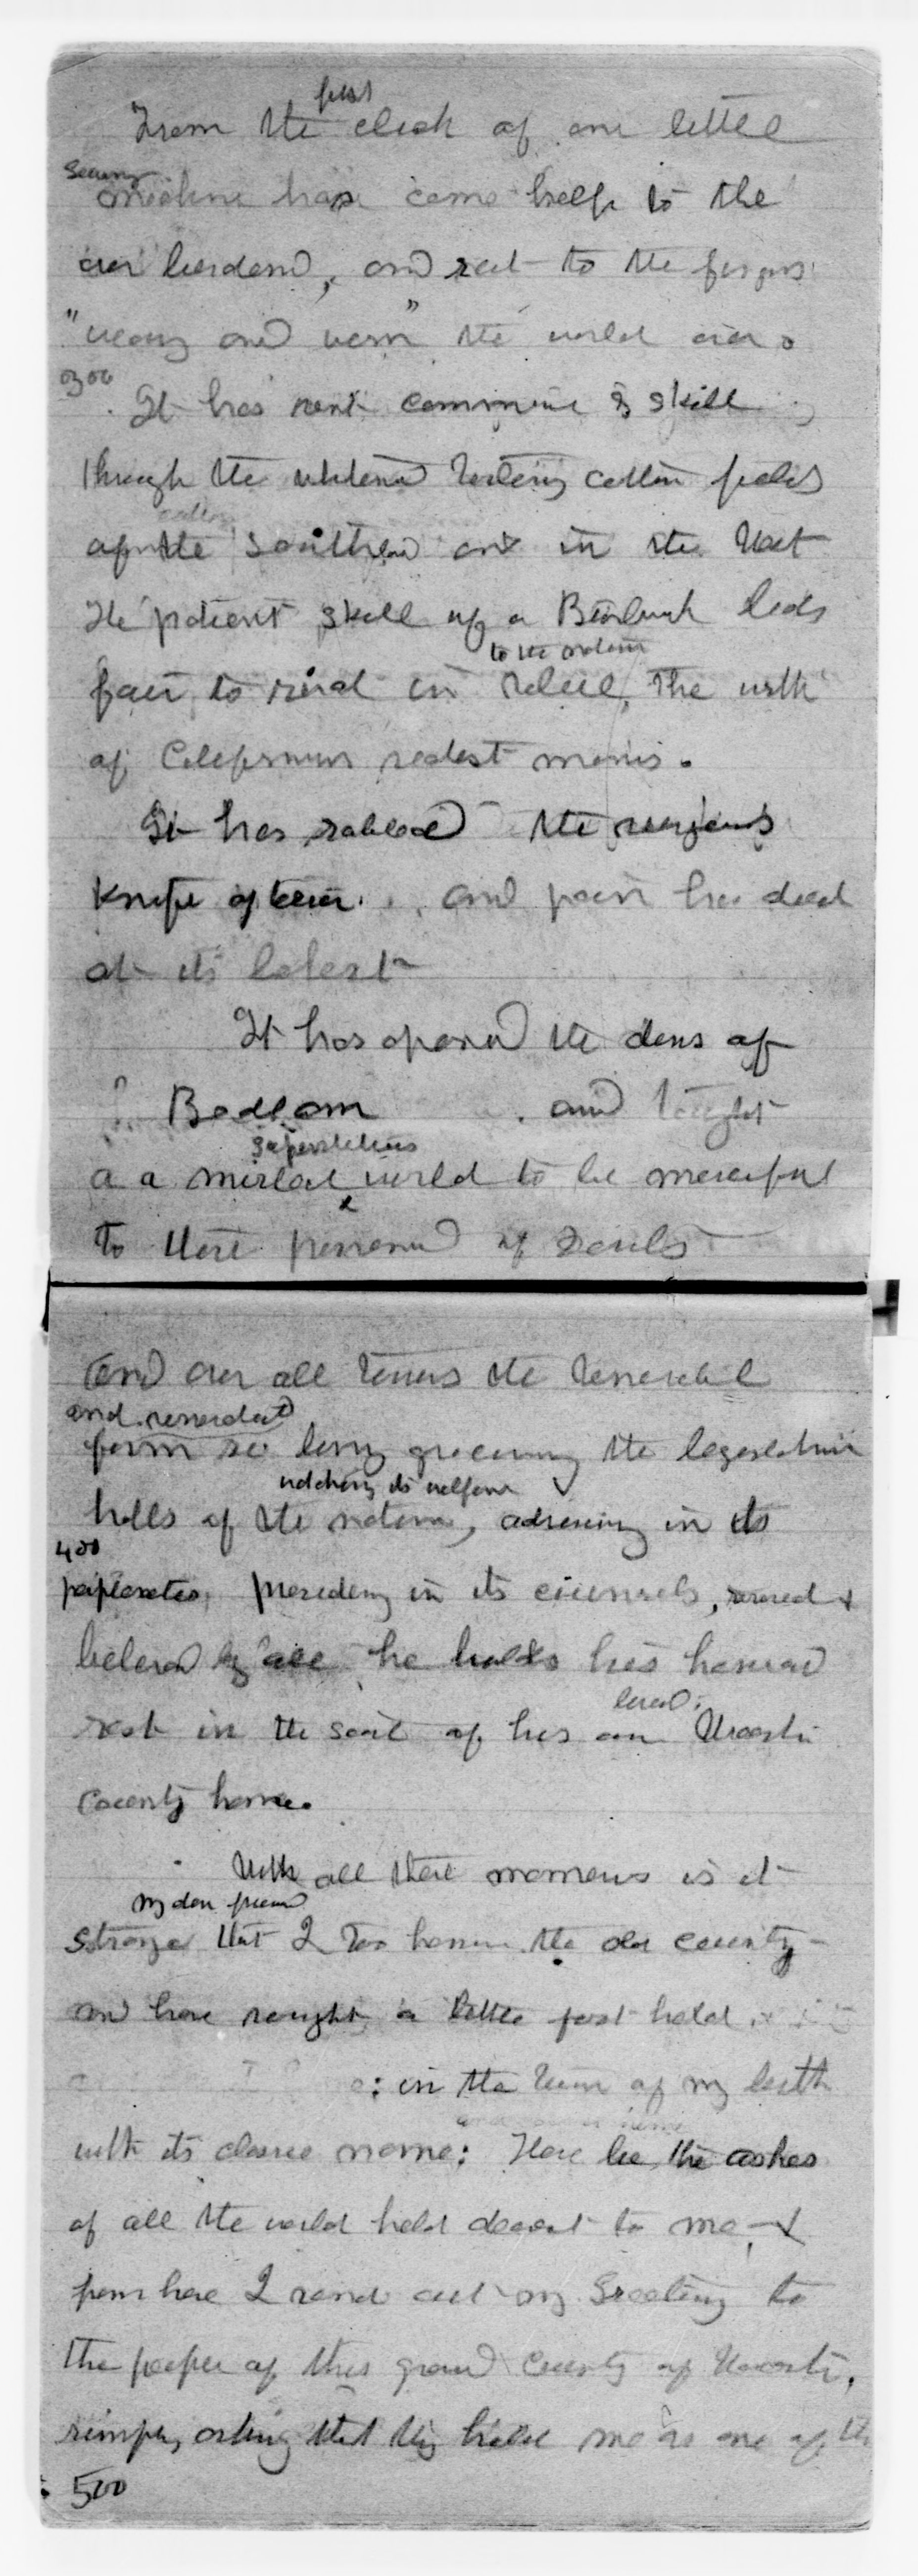 first
From the click of one little
Sewing
machine has come help to the
over burdened, and rest to the fingers
"weary and worn" the world over
300
It has sent commerce & skill
through the whitened cotton fields
cotton
of the South and in the West
The patient skill of a Burbank bids
to the nation
fair to rival in value, the wealth
of Californias richest mines.
It has robbed the surgeons
knife of terror. and pain has died
at its behest
It has opened the dens of
Bedlam and taught
superstitious
a a mistaken world to be merciful
to those possessed of Devils
And over all towers the venerable
and venerated
form so long gracing the legislative
watching its welfare
halls of the nation, advising in its
400
perplexities, presiding in its counsels, revered &
beloved by all he holds his honored
loved
rest in the soil of his own Worcester
County home.
With all these memories is it
my dear friend
Strange that I too honor the old county
and have sought a little foot hold
in the town of my birth
and
with its classic name: Here lie the ashes
of all the world held dearest to me, &
from here I send out my Greeting to
the people of this grand County of Worcester,
simply asking that they hold me as one of th
500